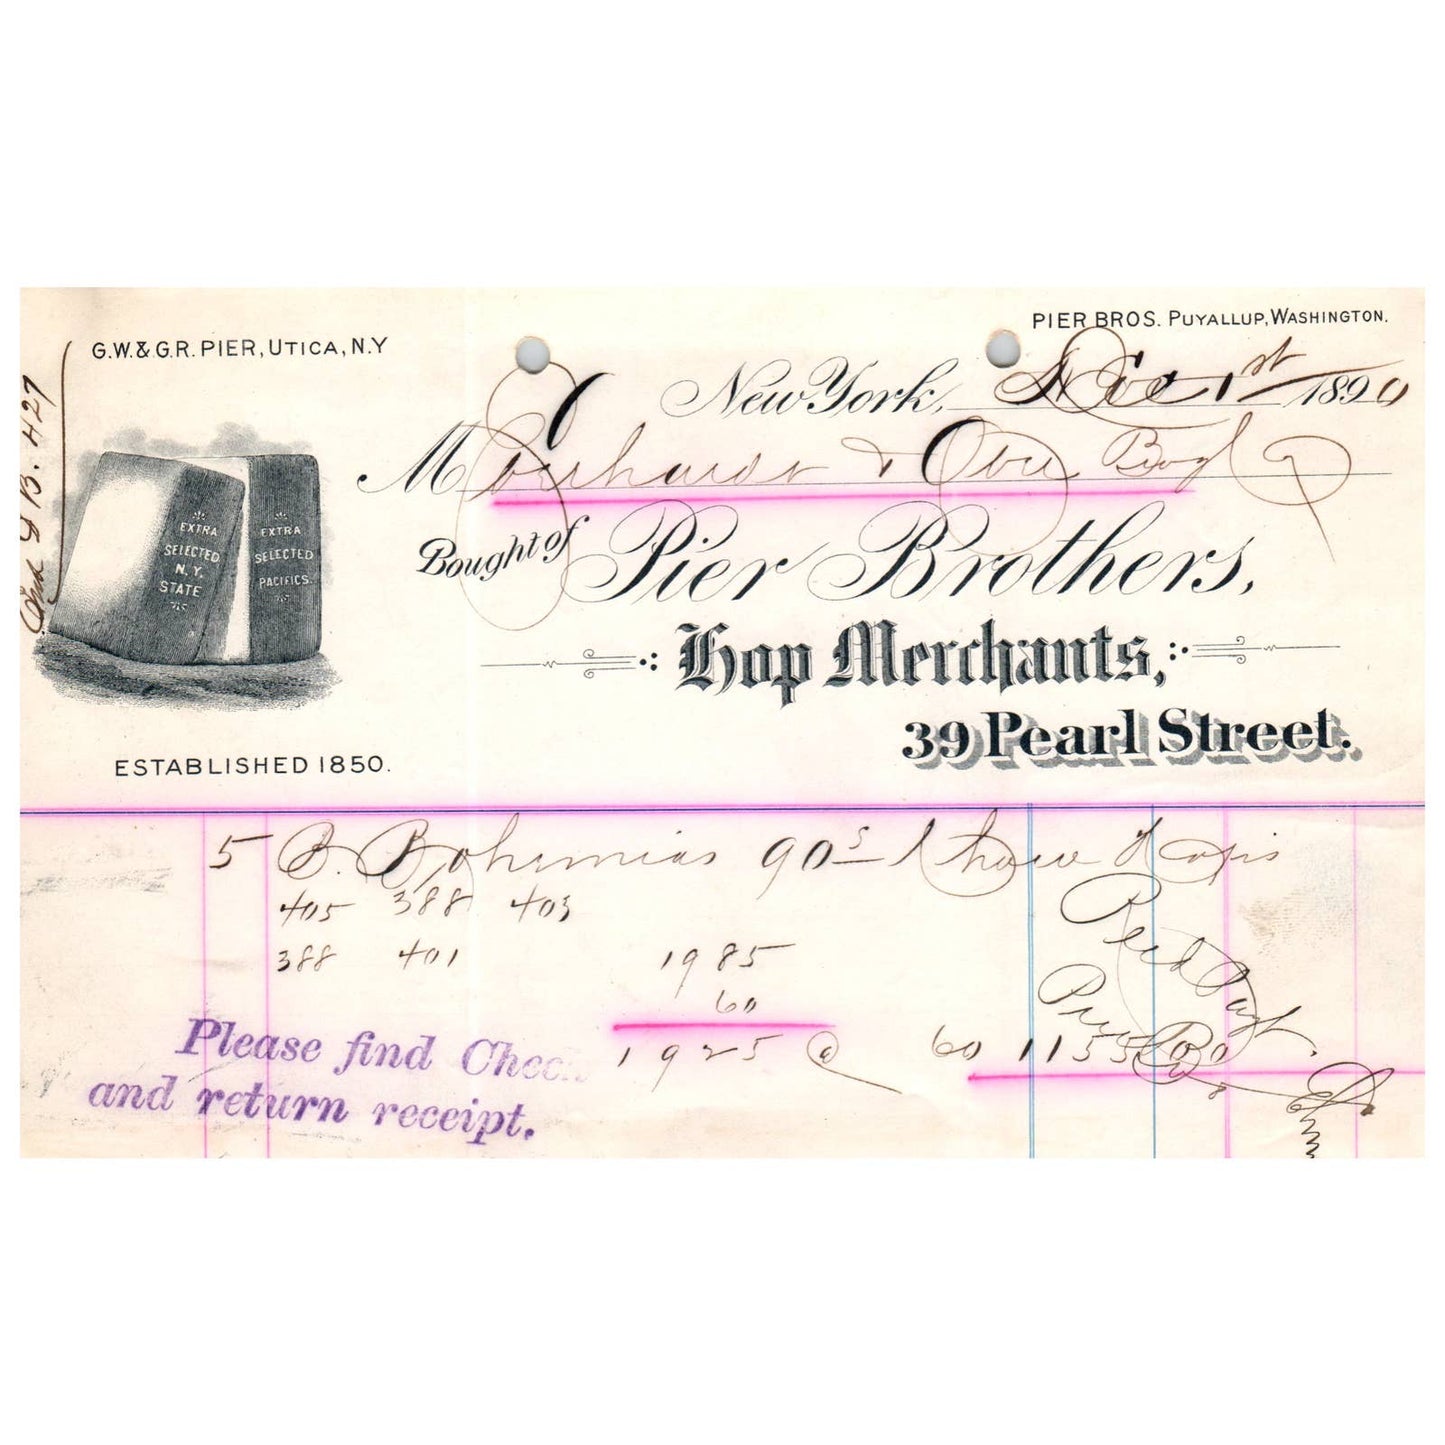 PIER BROS. PUYALLUP, WASHINGTON.
G.W. & G.R. PIER, UTICA, N.Y
New York, Dec 1st 1890
M &
Bought of Pier Brothers,
Hop Merchants,
39 Pearl Street.
EXTRA
SELECTED
N.Y.
STATE
EXTRA
SELECTED
PACIFICS.
ESTABLISHED 1850.
B. 427
5 B. Bohemias 90s
405 388 403
388 401
1985
60
1925 @ 60 1155 00
Recd Payt
Pier Bros
Please find Chec
and return receipt.